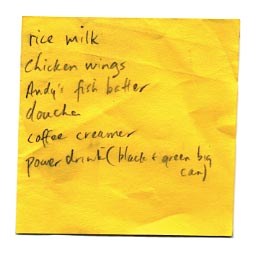 rice milk
Chicken wings
Andy's fish batter
douche
coffee creamer
power drink (black & green big
can)